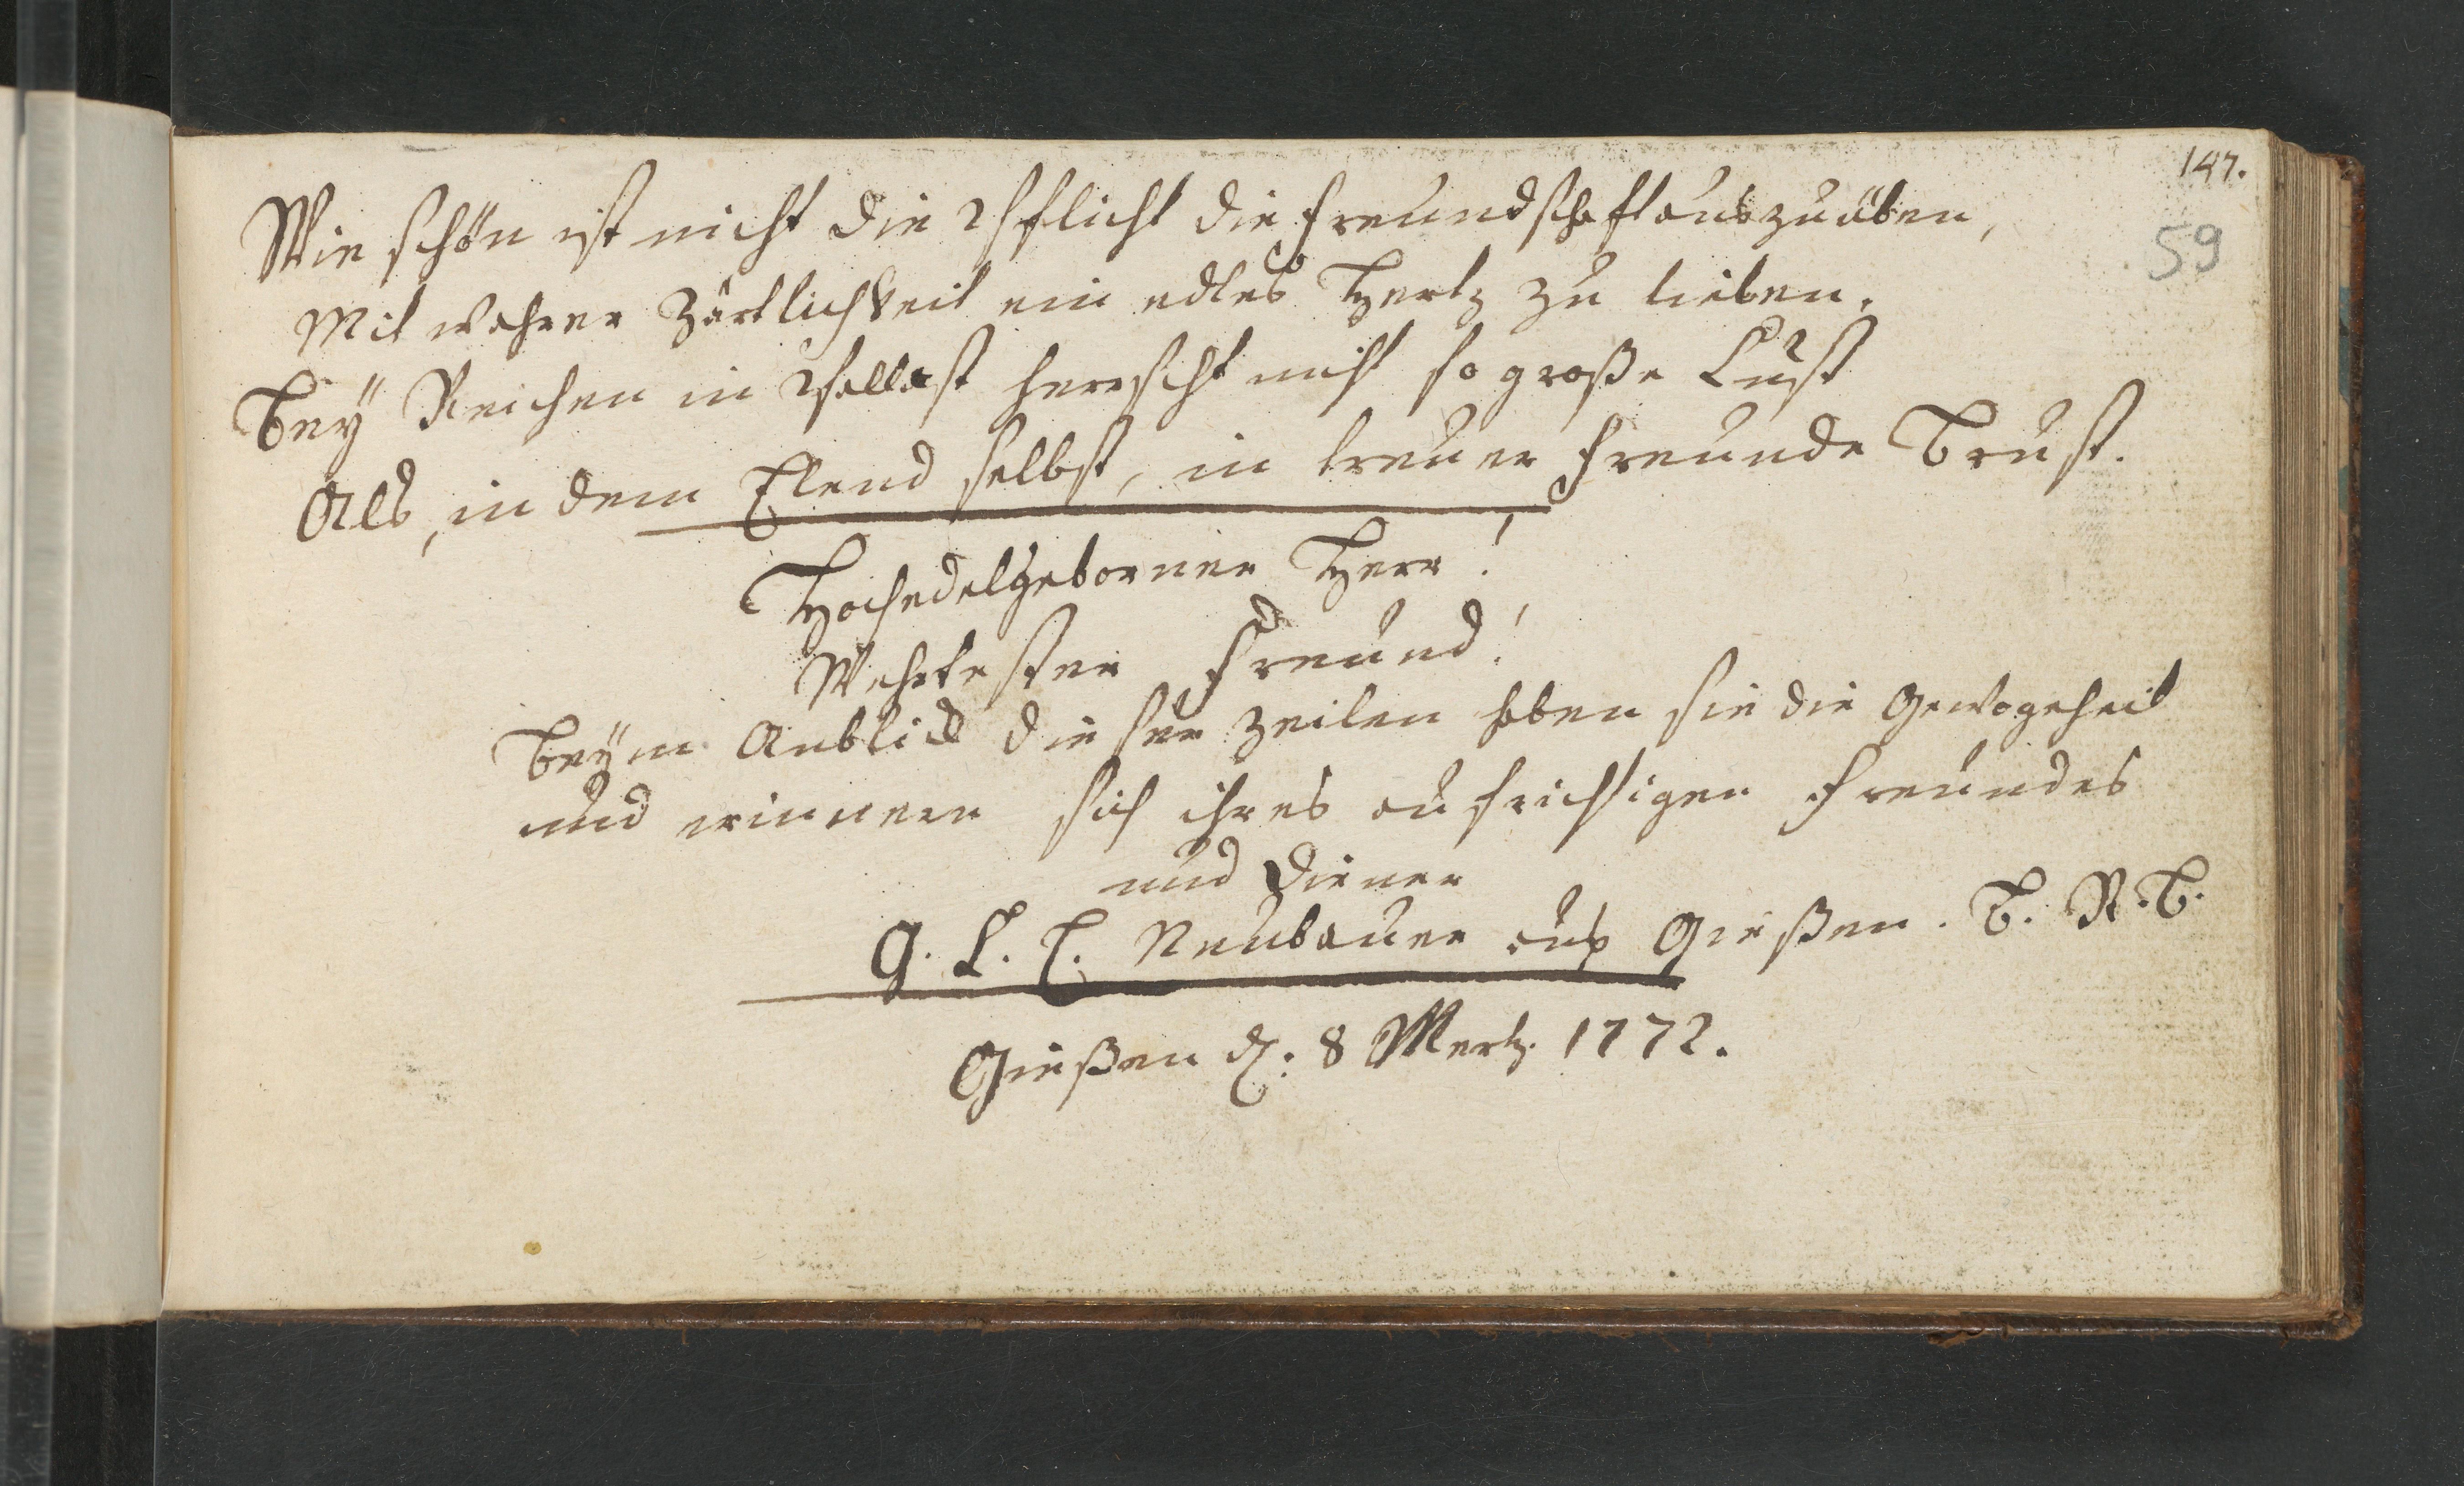 147.
59
Wie schön ist nicht die Pflicht die Freundschaft auszuüben,
Mit wahrer Zärtlichkeit ein edles Hertz zu lieben.
Beÿ Reichen in Pallast herrscht nicht so große Lust
Als, in dem Elend selbst, in treuer Freunde Brust.
Hochedelgeborner Herr!
Wehrtester Freund!
Beÿm Anblick dieser Zeilen haben sie die Gewogeheit
und erinnern sich ihres aufrichtigen Freundes
und Diener
G. L. C. Neubauer aus Gießen. B. R. B.
Gießen d: 8 Mertz. 1772.